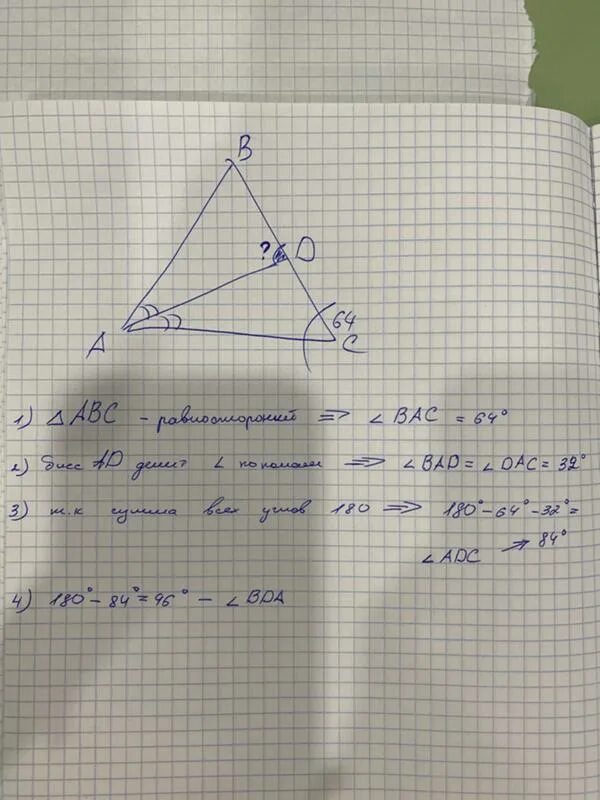 B
? D
64
A
C
1) △ABC - равносторонний ⇒ ∠BAC = 64°
2) бисс AD делит ∠ пополам ⇒ ∠BAD = ∠DAC = 32°
3) т.к сумма всех углов 180 ⇒ 180° - 64° - 32° =
∠ADC → 84°
4) 180° - 84° = 96° - ∠BDA